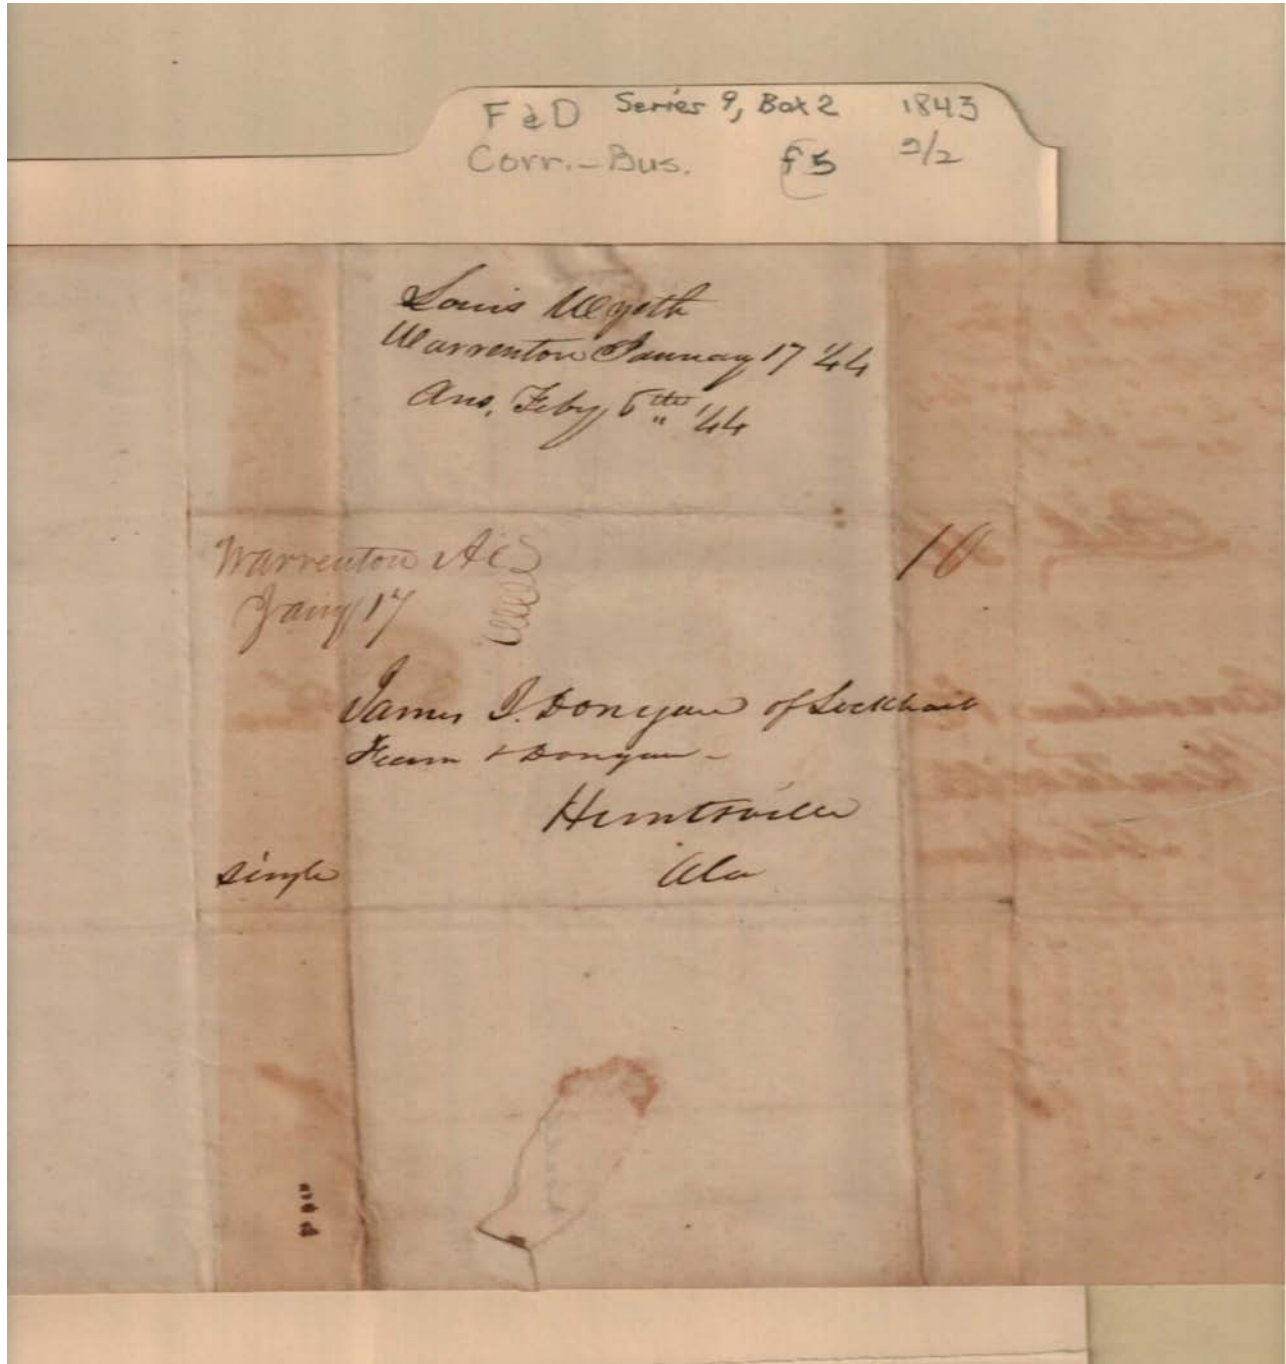 F & D Series 9, Box 2 1843
Corr.-Bus. f5 2/2
Louis Wyeth
Warrenton January 17 '44
Ans. Feby 6th '44
Warrenton Al
Jany 17
10
James J. Donegan of Lockhart
Fearn & Donegan -
Huntsville
single Ala